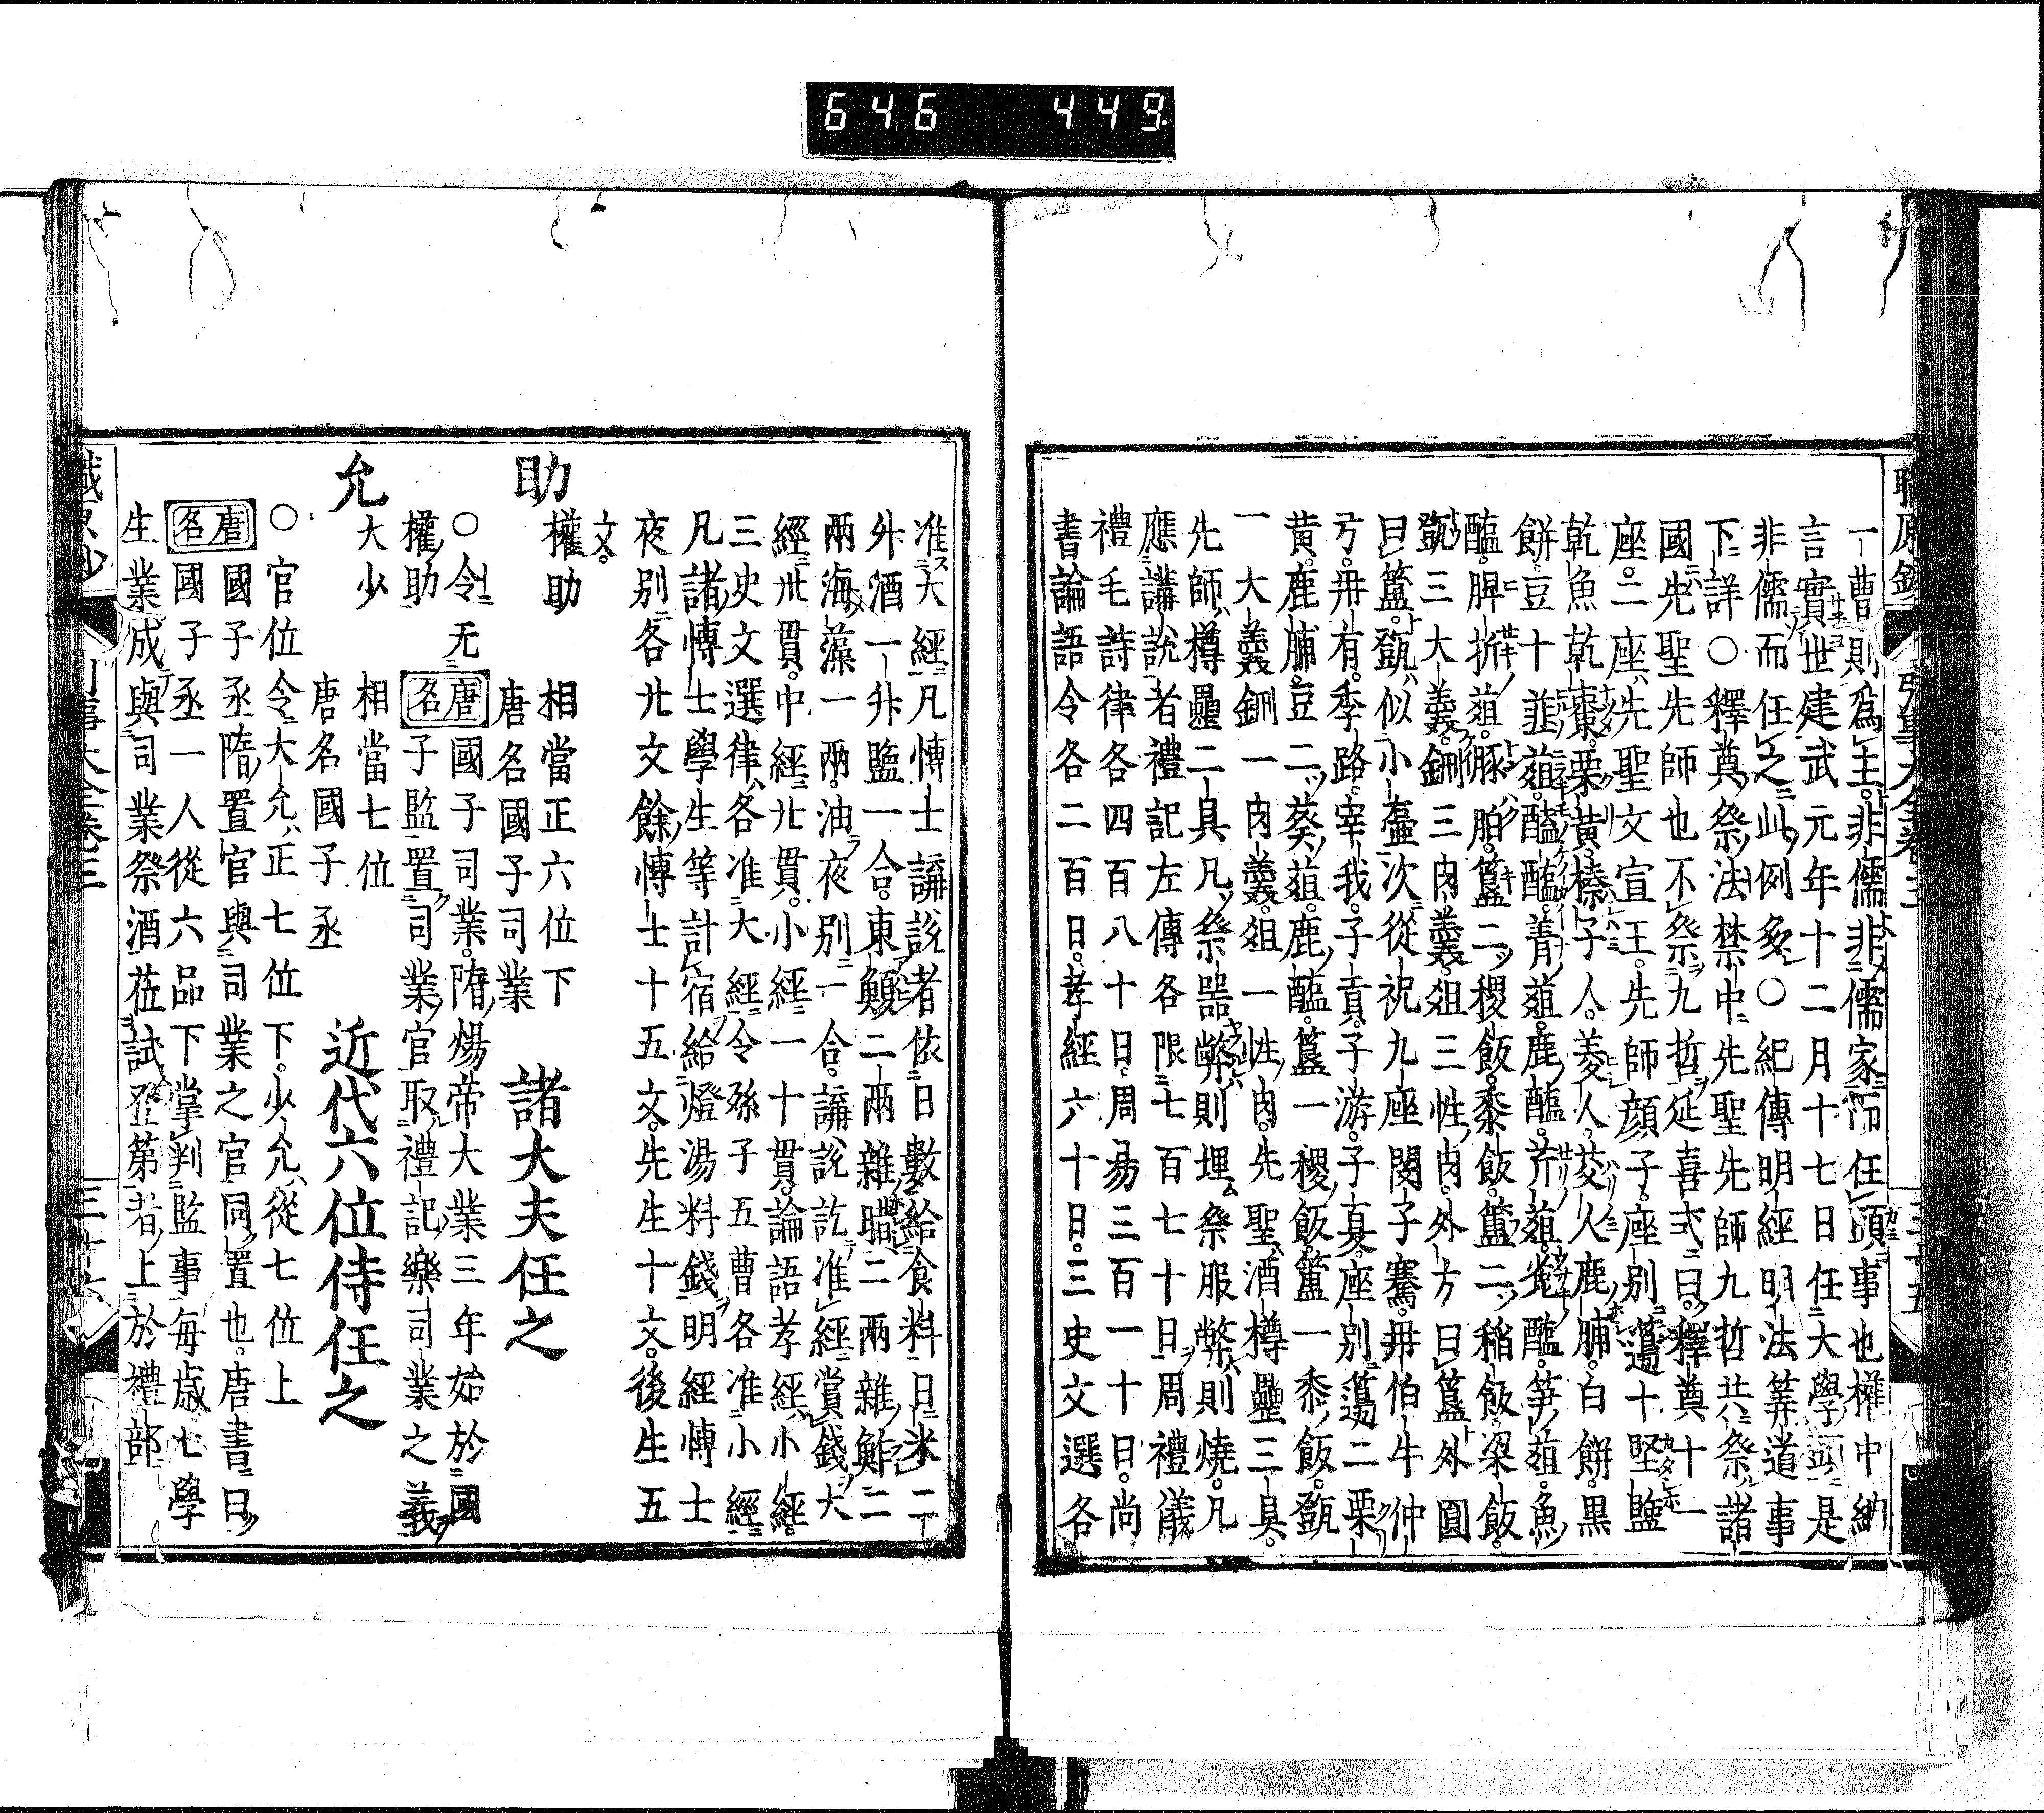 646 449
一曹則為主非儒非儒家而任頭事也権中納
言實世建武元年十二月十七日任大學頭是
非儒而任之此例多〇紀傳明經明法筭道事
下詳〇釋奠祭法禁中先聖先師九哲共祭諸
國先聖先師也不祭九哲延喜式曰釋奠十一
座二座先聖文宣王先師顔子座別籩十堅鹽
乾魚乾棗栗黄榛子人菱人芡人鹿脯白餅黒
餅豆十韮葅醓醢菁葅鹿醢芹葅兎醢笋葅魚
醢脾折葅豚胉簋二稷飯黍飯簠二稲飯梁飯
㽅三大羹鉶三肉羹俎三性肉外方曰簠外圓
曰簋㽅似小壷次從祝九座閔子騫冊伯牛仲
弓冊有季路宰我子貢子游子夏座別籩二栗
黄鹿脯豆二葵葅鹿醢簋一稷飯簠一黍飯㽅
一大羹鉶一肉羹俎一性肉先聖酒樽罍三具
先師樽罍二具凡祭器弊則埋祭服弊則燒凡
應講説者禮記左傳各限七百七十日周禮儀
禮毛詩律各四百八十日周易三百一十日尚
書論語令各二百日孝經六十日三史文選各
准大經凡愽士講説者依日數給食料日米二
升酒一升鹽一合東鰒二兩雜腊二兩雜鮓二
兩海藻一兩油夜別一合講説訖准經賞錢大
經卅貫中經廿貫小經一十貫論語孝經小經
三史文選律各准大經令孫子五曹各准小經
凡諸愽士學生等計宿給燈湯料錢明經愽士
夜別各廿文餘愽士十五文先生十文後生五
文
助 權助 相當正六位下 唐名國子司業 諸大夫任之
〇令无 唐名 國子司業隋煬帝大業三年始於國
權助 子監置司業官取禮記樂司業之義
允 大少 相當七位 唐名國子丞 近代六位侍任之
〇官位令大允正七位下少允從七位上
唐名 國子丞隋置官與司業之官同置也唐書曰
國子丞一人從六品下掌判監事毎歳七學
生業成與司業祭酒莅試登第者上於禮部